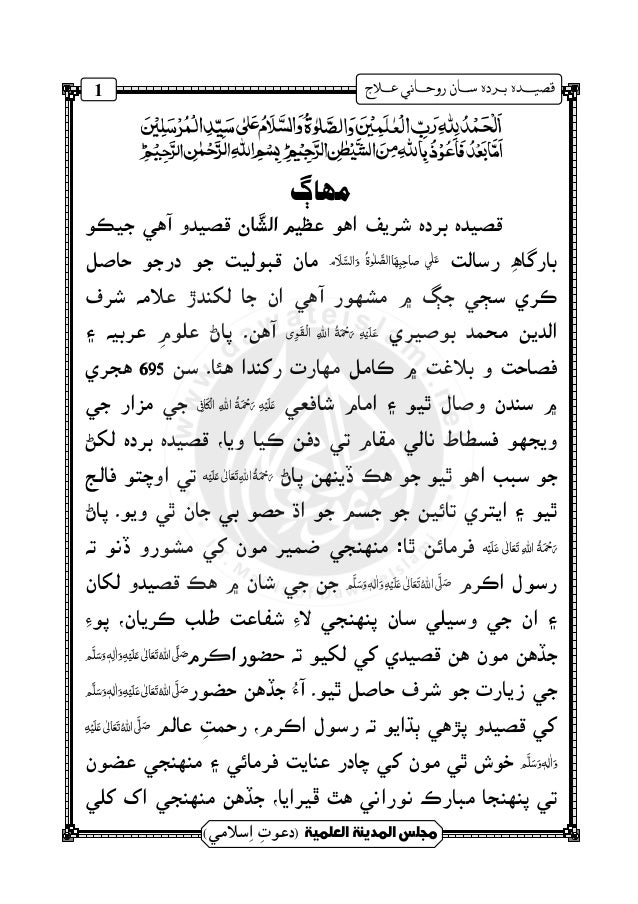 قصيده برده سان روحاني علاج
1
اَلْحَمْدُ لِلّٰهِ رَبِّ الْعٰلَمِيْنَ وَالصَّلٰوةُ وَالسَّلَامُ عَلٰى سَيِّدِ الْمُرْسَلِيْنَ
اَمَّا بَعْدُ فَاَعُوْذُ بِاللّٰهِ مِنَ الشَّيْطٰنِ الرَّجِيْمِ بِسْمِ اللّٰهِ الرَّحْمٰنِ الرَّحِيْمِ
مهاڳ
قصيده برده شريف اهو عظيم الشَّان قصيدو آهي جيڪو
بارگاهِ رسالت عَلٰى صَاحِبِهَا الصَّلٰوةُ وَالسَّلَام مان قبوليت جو درجو حاصل
ڪري سڄي جڳ ۾ مشهور آهي ان جا لکندڙ علامہ شرف
الدين محمد بوصيري عَلَيْهِ رَحْمَةُ اللهِ الْقَوِى آهن. پاڻ علومِ عربيہ ۽
فصاحت و بلاغت ۾ ڪامل مهارت رکندا هئا. سن 695 هجري
۾ سندن وصال ٿيو ۽ امام شافعي عَلَيْهِ رَحْمَةُ اللهِ الْكَافِى جي مزار جي
ويجهو فسطاط نالي مقام تي دفن ڪيا ويا، قصيده برده لکڻ
جو سبب اهو ٿيو جو هڪ ڏينهن پاڻ رَحْمَةُ اللهِ تَعَالٰى عَلَيْه تي اوچتو فالج
ٿيو ۽ ايتري تائين جو جسم جو اڌ حصو بي جان ٿي ويو. پاڻ
رَحْمَةُ اللهِ تَعَالٰى عَلَيْه فرمائن ٿا: منهنجي ضمير مون کي مشورو ڏنو تہ
رسول اڪرم صَلَّى اللهُ تَعَالٰى عَلَيْهِ وَاٰلِهٖ وَسَلَّم جن جي شان ۾ هڪ قصيدو لکان
۽ ان جي وسيلي سان پنهنجي لاءِ شفاعت طلب ڪريان، پوءِ
جڏهن مون هن قصيدي کي لکيو تہ حضور اڪرم صَلَّى اللهُ تَعَالٰى عَلَيْهِ وَاٰلِهٖ وَسَلَّم
جي زيارت جو شرف حاصل ٿيو. آءُ جڏهن حضور صَلَّى اللهُ تَعَالٰى عَلَيْهِ وَاٰلِهٖ وَسَلَّم
کي قصيدو پڙهي ٻڌايو تہ رسول اڪرم، رحمتِ عالم صَلَّى اللهُ تَعَالٰى عَلَيْهِ
وَاٰلِهٖ وَسَلَّم خوش ٿي مون کي چادر عنايت فرمائي ۽ منهنجي عضون
تي پنهنجا مبارڪ نوراني هٿ ڦيرايا، جڏهن منهنجي اک کلي
مجلس المدينة العلمية (دعوتِ اِسلامي)